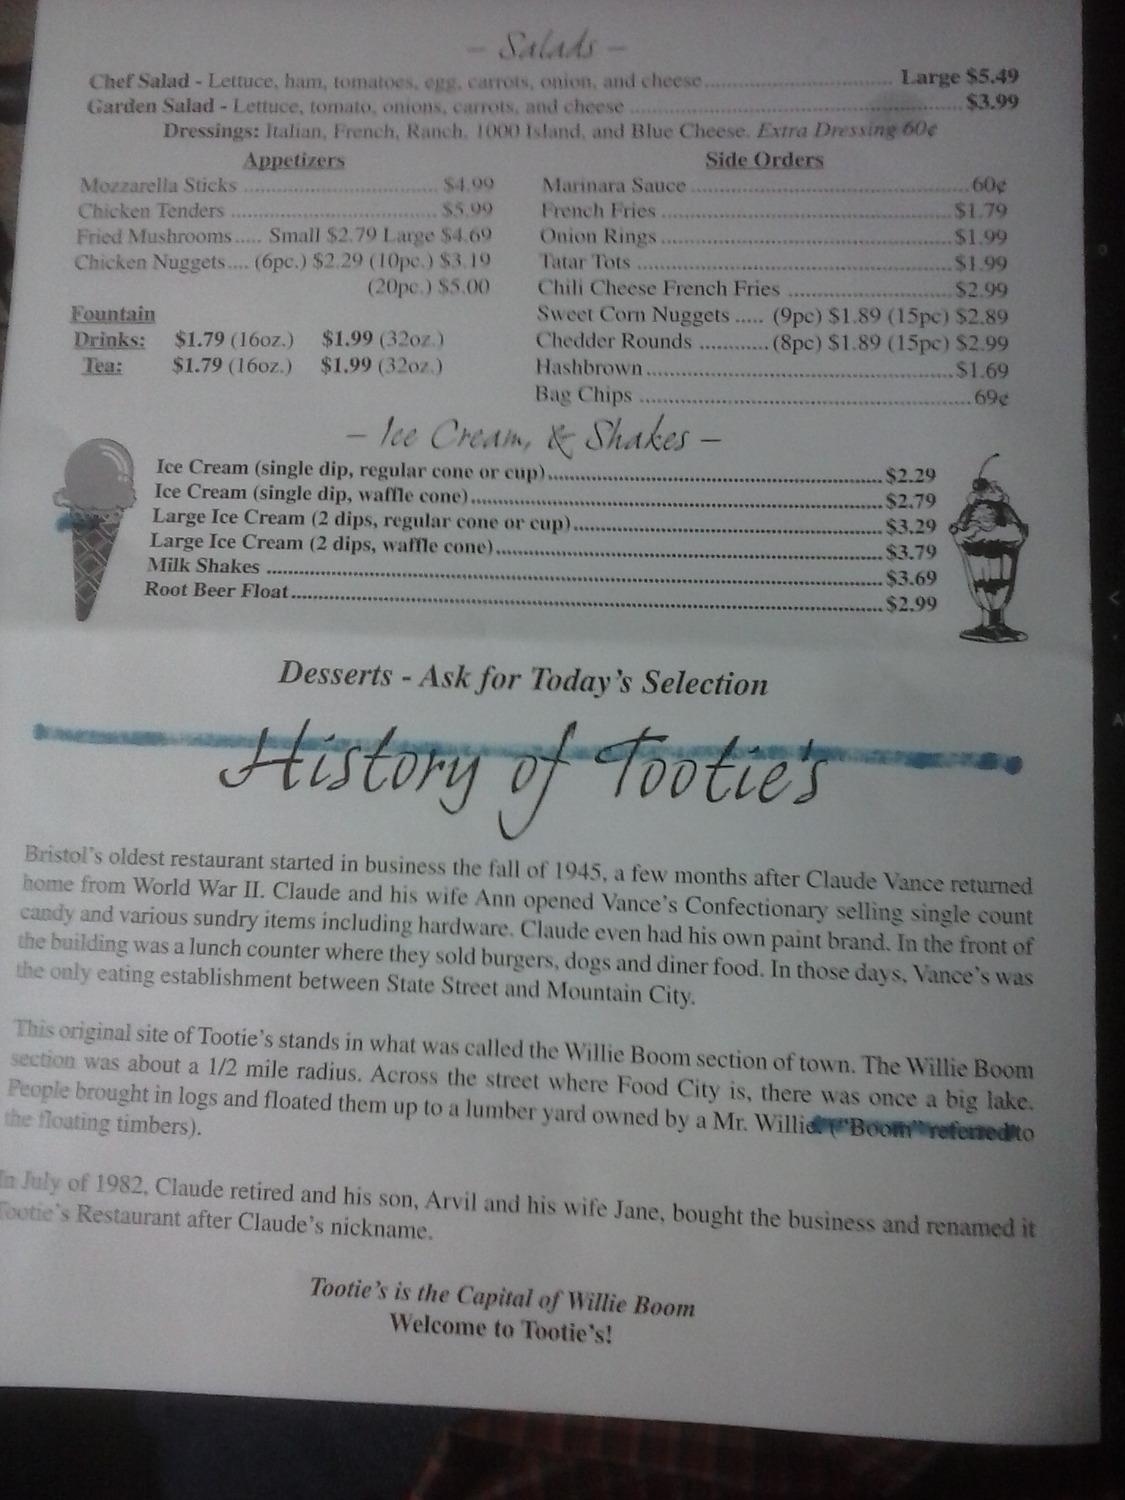 – Salads –
Chef Salad - Lettuce, ham, tomatoes, egg, carrots, onion, and cheese.......... Large $5.49
Garden Salad - Lettuce, tomato, onions, carrots, and cheese .......... $3.99
Dressings: Italian, French, Ranch, 1000 Island, and Blue Cheese. Extra Dressing 60¢
Appetizers
Mozzarella Sticks .......... $4.99
Chicken Tenders .......... $5.99
Fried Mushrooms ..... Small $2.79 Large $4.69
Chicken Nuggets.... (6pc.) $2.29 (10pc.) $3.19
(20pc.) $5.00
Fountain
Drinks: $1.79 (16oz.) $1.99 (32oz.)
Tea: $1.79 (16oz.) $1.99 (32oz.)
Side Orders
Marinara Sauce .......... 60¢
French Fries .......... $1.79
Onion Rings .......... $1.99
Tatar Tots .......... $1.99
Chili Cheese French Fries .......... $2.99
Sweet Corn Nuggets ..... (9pc) $1.89 (15pc) $2.89
Chedder Rounds .......... (8pc) $1.89 (15pc) $2.99
Hashbrown .......... $1.69
Bag Chips .......... 69¢
– Ice Cream, & Shakes –
Ice Cream (single dip, regular cone or cup).......... $2.29
Ice Cream (single dip, waffle cone).......... $2.79
Large Ice Cream (2 dips, regular cone or cup).......... $3.29
Large Ice Cream (2 dips, waffle cone).......... $3.79
Milk Shakes .......... $3.69
Root Beer Float .......... $2.99
Desserts - Ask for Today's Selection
History of Tootie's
Bristol's oldest restaurant started in business the fall of 1945, a few months after Claude Vance returned
home from World War II. Claude and his wife Ann opened Vance's Confectionary selling single count
candy and various sundry items including hardware. Claude even had his own paint brand. In the front of
the building was a lunch counter where they sold burgers, dogs and diner food. In those days, Vance's was
the only eating establishment between State Street and Mountain City.
This original site of Tootie's stands in what was called the Willie Boom section of town. The Willie Boom
section was about a 1/2 mile radius. Across the street where Food City is, there was once a big lake.
People brought in logs and floated them up to a lumber yard owned by a Mr. Willie. ("Boom" referred to
the floating timbers).
In July of 1982, Claude retired and his son, Arvil and his wife Jane, bought the business and renamed it
Tootie's Restaurant after Claude's nickname.
Tootie's is the Capital of Willie Boom
Welcome to Tootie's!